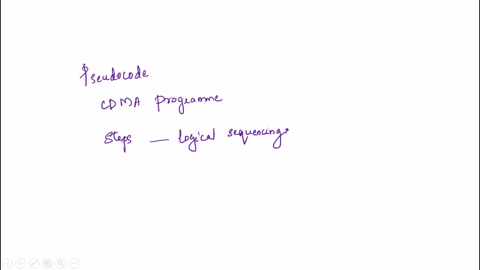 Pseudocode
CDMA Programme
Steps — logical sequencing